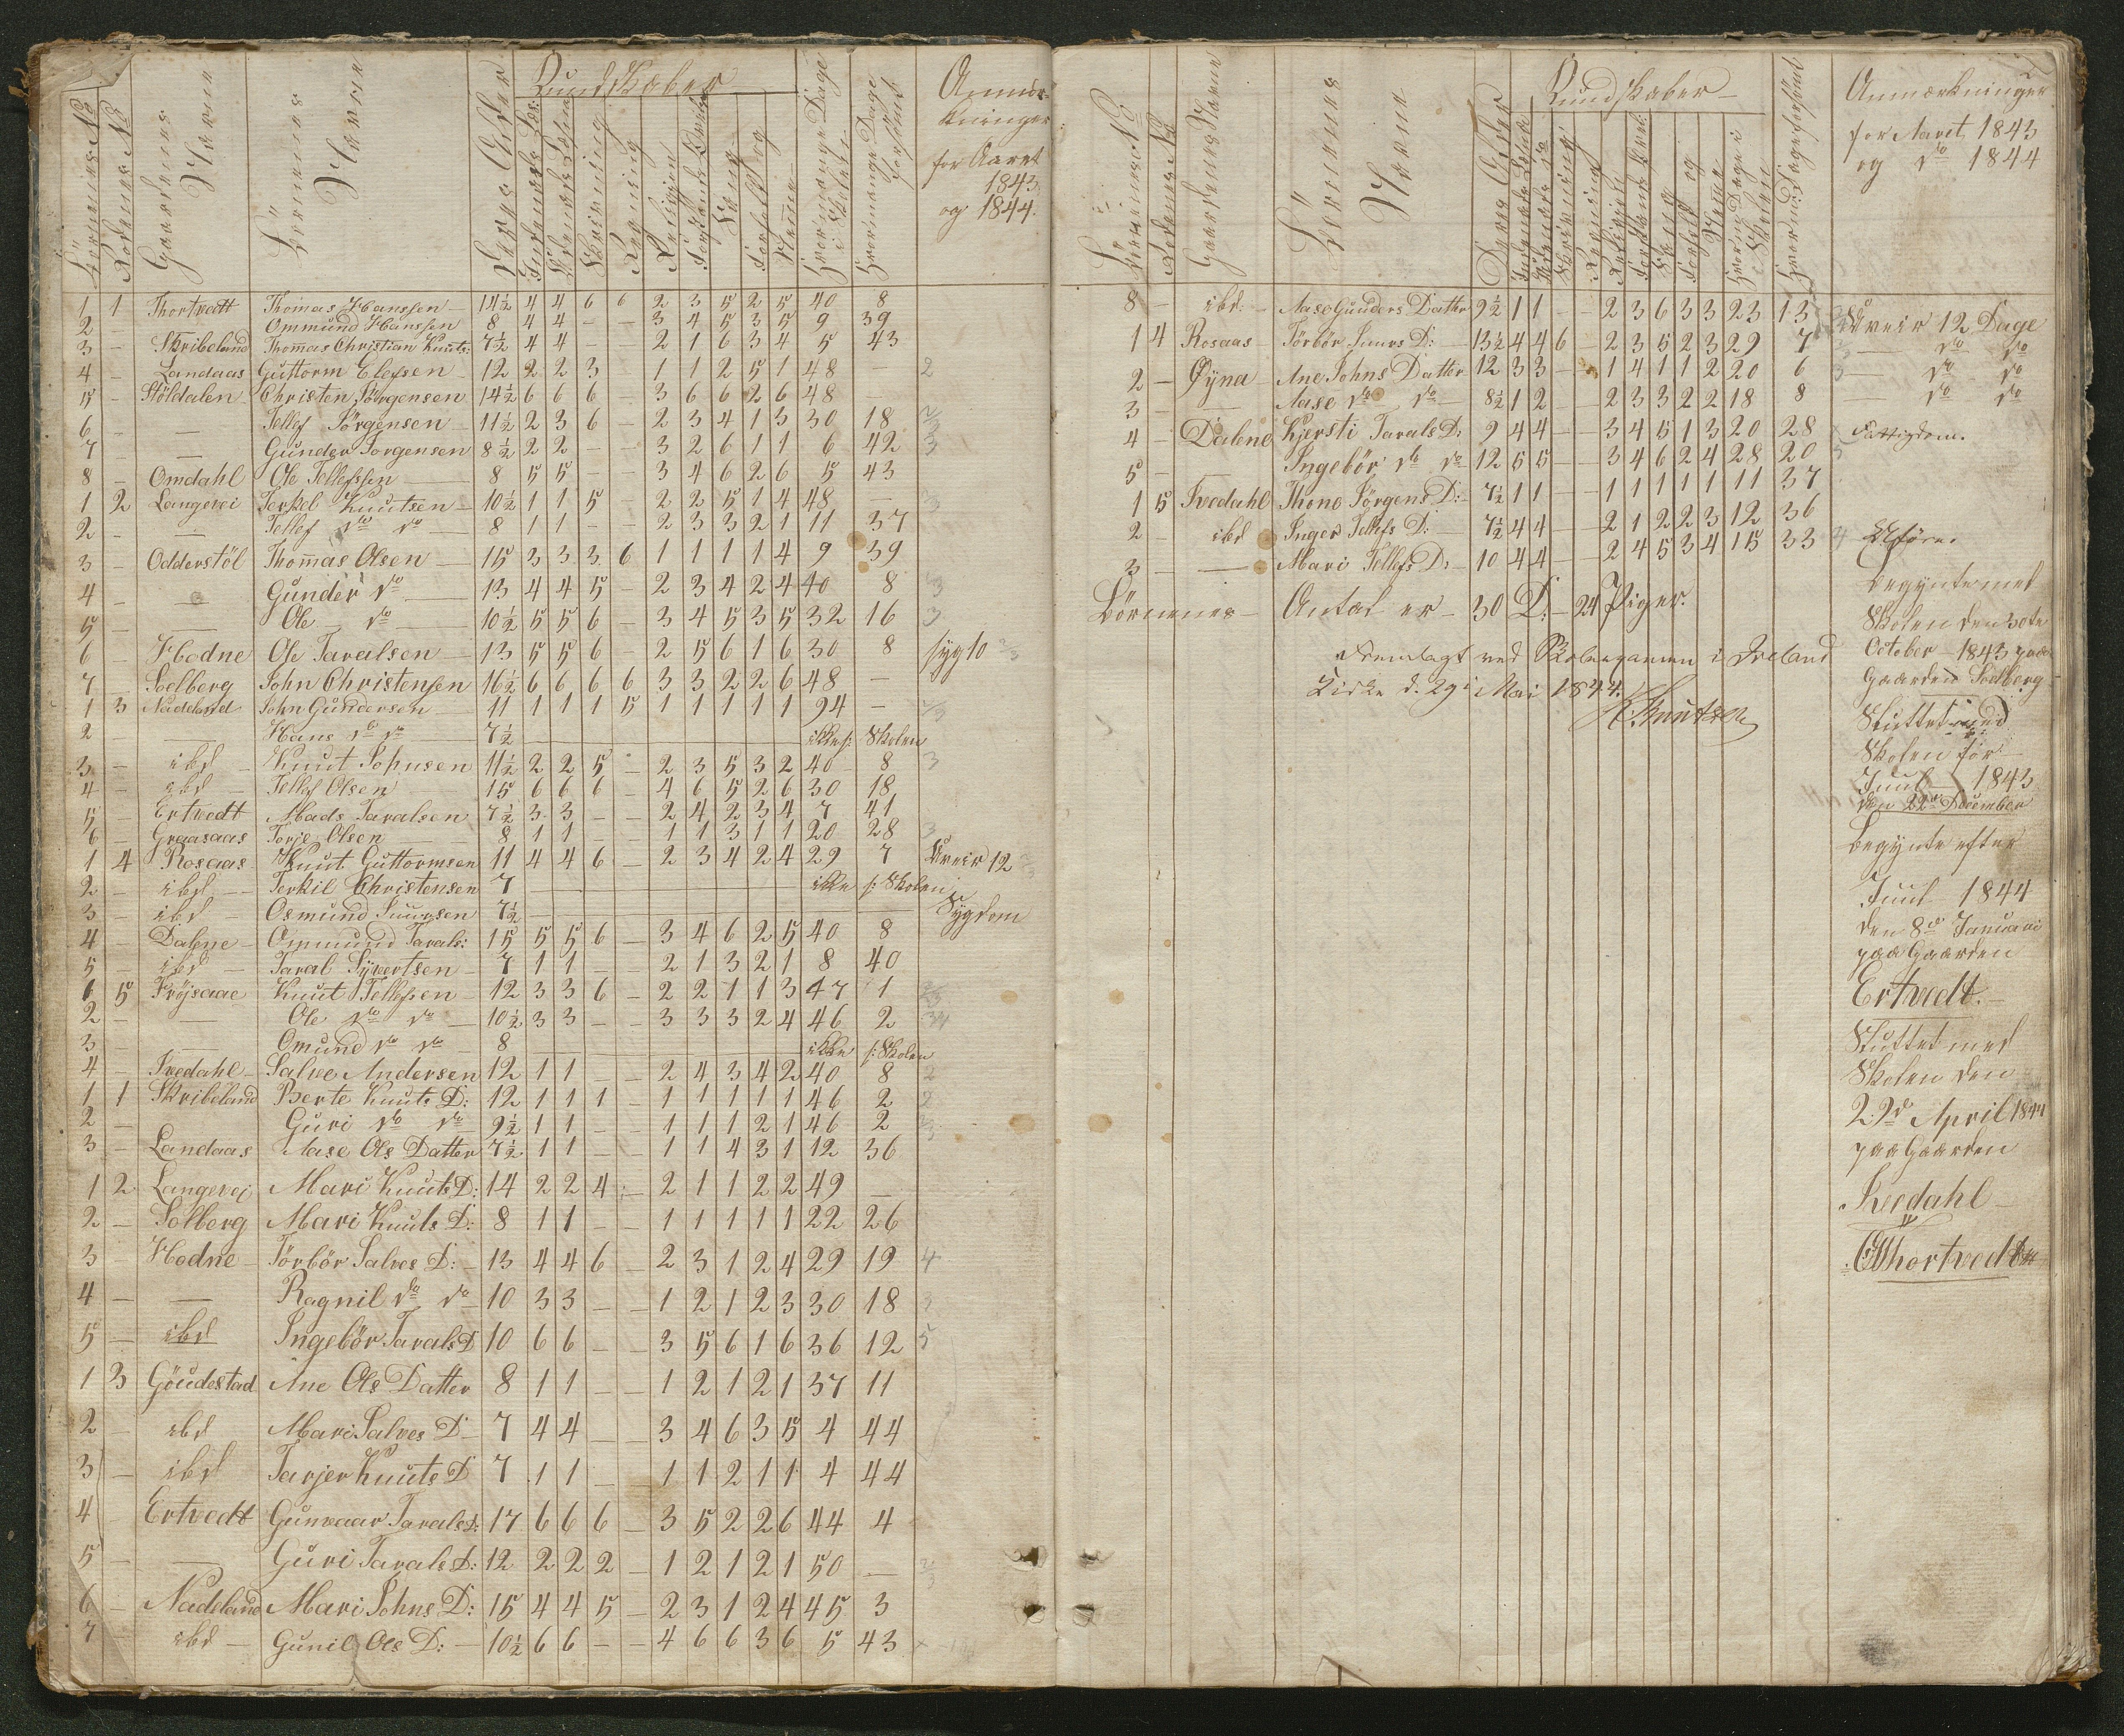 Börnenes No
Rodenes No
Gaardenes Navne
Börnenes Navne
Deres Alder
Kundskaber
Skrivning
Regning
Religion
Sang
Hvormange Dage i Skole
Hvormange Dage forsömt
Anmærkninger
for Aaret
1843
og 1844.
1 1 Thortvedt Thomas Hanssen 14½ 4 4 6 6 2 3 5 2 5 40 8
2 - Ommund Hanssen 8 4 4 - - 3 4 5 3 5 9 39
3 - Skribeland Thomas Christian Knuts: 7½ 4 4 - 2 1 6 3 4 5 43
4 - Landaas Guttorm Elefsen 12 2 2 3 1 1 2 5 1 48 - 2
5 - Stöldalen Christen Jörgensen 14½ 6 6 6 - 3 6 6 2 6 48 -
6 - — Tellef Jörgensen 11½ 2 3 6 - 2 3 4 1 3 30 18
7 - — Gunder Jorgensen 8½ 2 2 - - 3 2 6 1 1 6 42 3
8 - Omdahl Ole Tellefssen 8 5 5 - - 3 4 6 2 6 5 43
1 2 Langevei Terkel Knutsen 10½ 1 1 5 - 2 2 5 1 4 48 -
2 - — Tellef do do 8 1 1 - - 2 3 3 2 1 11 37
3 - Odderstöl Thomas Olsen 15 3 3 3 6 1 1 1 1 4 9 39
4 - — Gunder do 13 4 4 5 - 2 3 4 2 4 40 8
5 - — Ole do 10½ 5 5 6 - 3 4 5 3 5 32 16 3
6 - Hodne Ole Taralsen 13 5 5 6 - 2 5 6 1 6 30 8 syg 10
7 - Soelberg John Christensen 16½ 6 6 6 6 3 3 2 2 6 48 -
1 3 Nadeland John Gundersen 11 1 1 1 5 1 1 1 1 1 94 -
2 — Hans do do 7½ ikke s: Skolen
3 - ibd Knut Johnsen 11½ 2 2 5 - 2 3 5 3 2 40 8 3
4 - ibd Tellef Olsen 15 6 6 6 - 4 6 5 2 6 30 18
5 Ertvedt Mads Taralsen 7½ 3 3 - - 2 4 2 3 4 7 41
6 - Graasaas Torje Olsen 8 1 1 - - 1 1 3 1 1 20 28 3
1 4 Rosaas Knut Guttormsen 11 4 4 6 - 2 3 4 2 4 29 7 Uveir 12
2 - ibd Terkil Christensen 7 — ikke s: Skolen
3 - ibd Osmund Siursen 7½ — Sygdom
4 - Dalene Ommund Tarals: 15 5 5 6 - 3 4 6 2 5 40 8
5 - ibd Taral Syvertsen 7 1 1 - - 2 1 3 2 1 8 40
1 5 Fröjsaae Knut Tellefsen 12 3 3 6 - 2 2 1 1 3 47 1
2 - — Ole do do 10½ 3 3 - - 3 3 3 2 4 46 2
3 - Omund do do 8 ikke s: Skolen
4 - Tvedahl Salve Andersen 12 1 1 - - 2 4 3 4 2 40 8 2
1 1 Skribeland Berte Knuts D: 12 1 1 1 - 1 1 1 1 1 46 2 2
2 - Guri do do 9½ 1 1 - - 1 1 1 2 1 46 2
3 - Landaas Aase Ols Datter 7½ 1 1 - - 1 1 4 3 1 12 36
1 2 Langevej Mari Knuts D: 14 2 2 4 - 2 1 1 2 2 49 -
2 - Solberg Mari Knuts D: 8 1 1 - - 1 1 1 1 1 22 26
3 - Hodne Törbör Salves D: 13 4 4 6 - 2 3 1 2 4 29 19 4
4 - — Ragnil do do 10 3 3 - - 1 2 1 2 3 30 18 3
5 - ibd Ingebör Tarals D 10 6 6 - - 3 5 6 1 6 36 12 5
1 3 Göudestad Ane Ols Datter 8 1 1 - - 1 2 1 2 1 37 11
2 - ibd Mari Salves D 7 4 4 - - 3 4 6 3 5 4 44
3 - ibd Tarjer Knuts D 7 1 1 - 1 1 2 1 1 4 44
4 - Ertvedt Gunvaar Tarals D: 17 6 6 6 - 3 5 2 2 6 44 4
5 - — Guri Tarals D: 12 2 2 2 - 1 2 1 2 1 50 -
6 - Nadeland Mari Johns D: 15 4 4 5 - 2 3 1 2 4 45 3
7 - ibd Gunil Ols D: 10½ 6 6 - - 4 6 6 3 6 5 43
Börnenes No
Rodenes No
Gaardenes Navne
Börnenes Navne
Deres Alder
Kundskaber
Skrivning
Regning
Religion
Sang
Anmærkninger
for Aaret 1843
og do 1844
8 - ibd. Aase Gunders Datter 9½ 1 1 - - 2 3 6 3 3 23 13 Uveir 12 Dage
1 4 Rosaas Törbör Siurs D: 13½ 4 4 6 - 2 3 5 2 3 29 7 — do do
2 - Øyna Ane Johns Datter 12 3 3 - 1 4 1 1 2 20 6 — do do
3 - — Aase do do 8½ 1 2 - - 2 3 3 2 2 18 8 — do do
4 - Dalene Kjersti Tarals D: 9 4 4 - - 3 4 5 1 3 20 28 Fattigdom.
5 - Ingebör do do 12 5 5 - - 3 4 6 2 4 28 20
1 5 Tvedahl Thone Jörgens D: 7½ 1 1 - - 1 1 1 1 1 11 37
2 - ibd Inger Tellefs D: 7½ 4 4 - - 2 1 2 2 3 12 36
3 - — Mari Tellefs D: 10 4 4 - - 2 4 5 3 4 15 33
Börnenes Antal er 30 D: 24 Piger.
Fremlagt ved Skoleexamen i Iveland
Kirke d. 29de Mai 1844.
Knutzen
Begynte med
Skolen den 30te
October 1843 paa
Gaarden Soelberg
Sluttet med
Skolen för
Juul 1843
den 22de December
Begynte efter
Juul 1844
den 8de Januari
paa Gaarden
Ertvedt.
Sluttet med
Skolen den
22de April 1844
paa Gaarden
Tvedahl